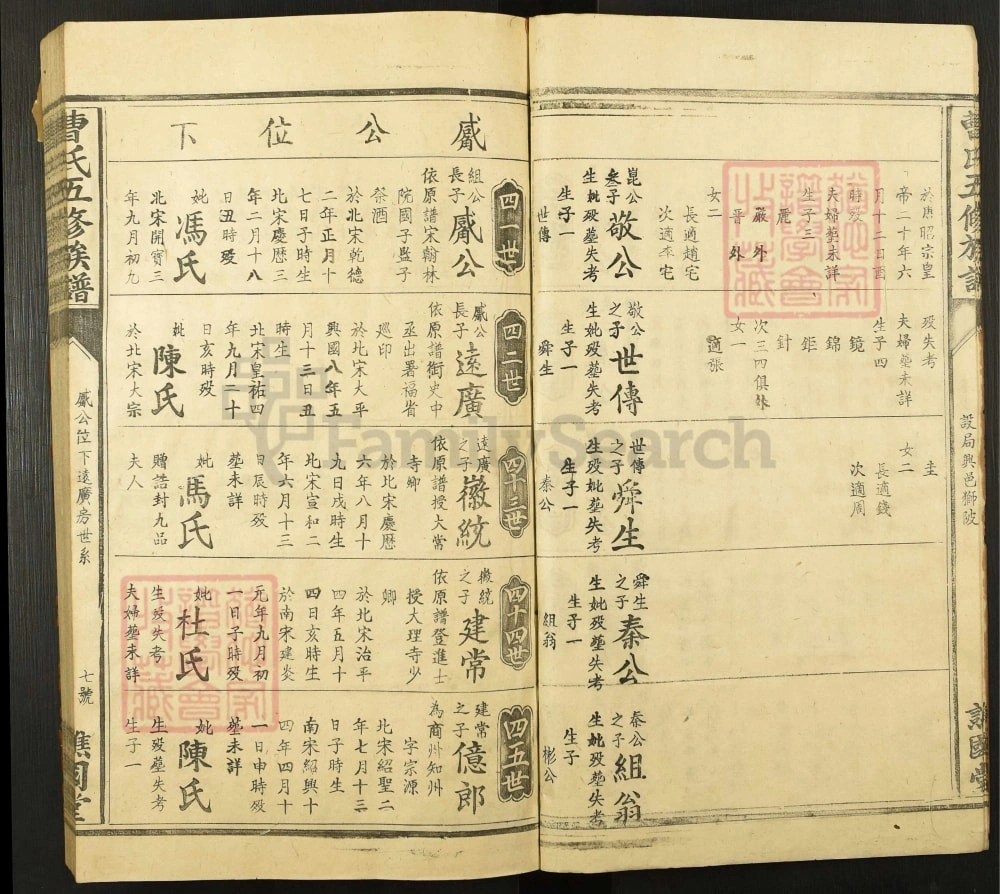 曹氏五修族譜
設局興邑獅陂
譙國堂
於唐昭宗皇
帝二十年六
月十二日酉
時歿
夫婦塋未詳
生子三
麗
嚴 外
晋 外
女二
長適趙宅
次適李宅
崑公
叁子
敬公
生妣歿塋失考
生子一
世傳
歿失考
夫婦塋未詳
生子四
鏡
錦
鉅
針
次三四俱外
女一
適張
敬公
之子
世傳
生妣歿塋失考
生子一
舜生
圭
女二
長適錢
次適周
世傳
之子
舜生
生歿妣塋失考
生子一
秦公
舜生
之子
秦公
生妣歿塋失考
生子一
組翁
秦公
之子
組翁
生妣歿塋失考
生子
彬公
鳳公位下
四一世
組公
長子
鳳公
依原譜宋翰林
院國子監子
祭酒
於北宋乾德
二年正月十
七日子時生
北宋慶曆三
年二月十八
日丑時歿
妣
馮氏
北宋開寶三
年九月初九
四二世
鳳公
長子
遠廣
依原譜御史中
丞出署福省
巡印
於北宋太平
興國八年五
月十三日丑
時生
北宋皇祐四
年九月二十
日亥時歿
妣
陳氏
於北宋太宗
四十三世
遠廣
之子
徽統
依原譜授大常
寺卿
於北宋慶曆
六年八月十
九日戌時生
北宋宣和二
年六月十三
日辰時歿
塋未詳
妣
馬氏
贈誥封九品
夫人
四十四世
徽統
之子
建常
依原譜登進士
授大理寺少
卿
於北宋治平
四年五月十
四日亥時生
於南宋建炎
元年九月初
一日子時歿
妣
杜氏
生歿失考
夫婦塋未詳
四五世
建常
之子
億郎
為商州知州
字宗源
北宋紹聖二
年七月十三
日子時生
南宋紹興十
四年四月十
一日申時歿
塋未詳
妣
陳氏
生歿塋失考
生子一
曹氏五修族譜
鳳公位下遠廣房世系
七號
譙國堂
FamilySearch